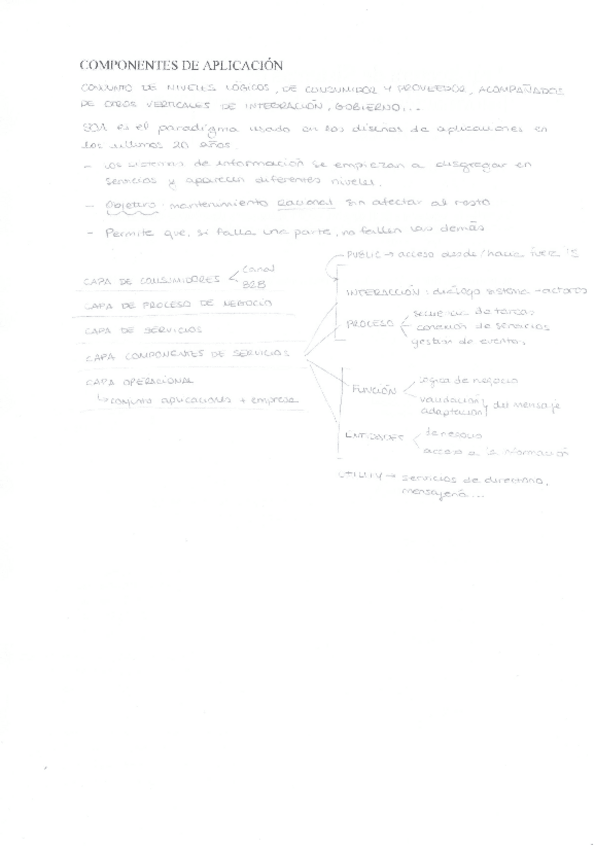 COMPONENTES DE APLICACIÓN
CONJUNTO DE NIVELES LÓGICOS, DE CONSUMIDOR Y PROVEEDOR, ACOMPAÑADOS
DE OTROS VERTICALES DE INTEGRACIÓN, GOBIERNO...
SOA es el paradigma usado en los diseños de aplicaciones en
los últimos 20 años.
- Los sistemas de información se empiezan a disgregar en
servicios y aparecen diferentes niveles.
- Objetivo: mantenimiento racional sin afectar al resto
- Permite que, si falla una parte, no fallen las demás
CAPA DE CONSUMIDORES < Canal
B2B
CAPA DE PROCESO DE NEGOCIO
CAPA DE SERVICIOS
CAPA COMPONENTES DE SERVICIOS
CAPA OPERACIONAL
↳ conjunto aplicaciones + empresa
PUBLIC → acceso desde/hacia
INTERACCIÓN: diálogo sistema - actores
PROCESO < de tareas
conexión de servicios
gestión de eventos
FUNCIÓN < lógica de negocio
validación y
adaptación del mensaje
ENTIDADES <
acceso a la información
UTILITY → servicios de directorio,
mensajería...